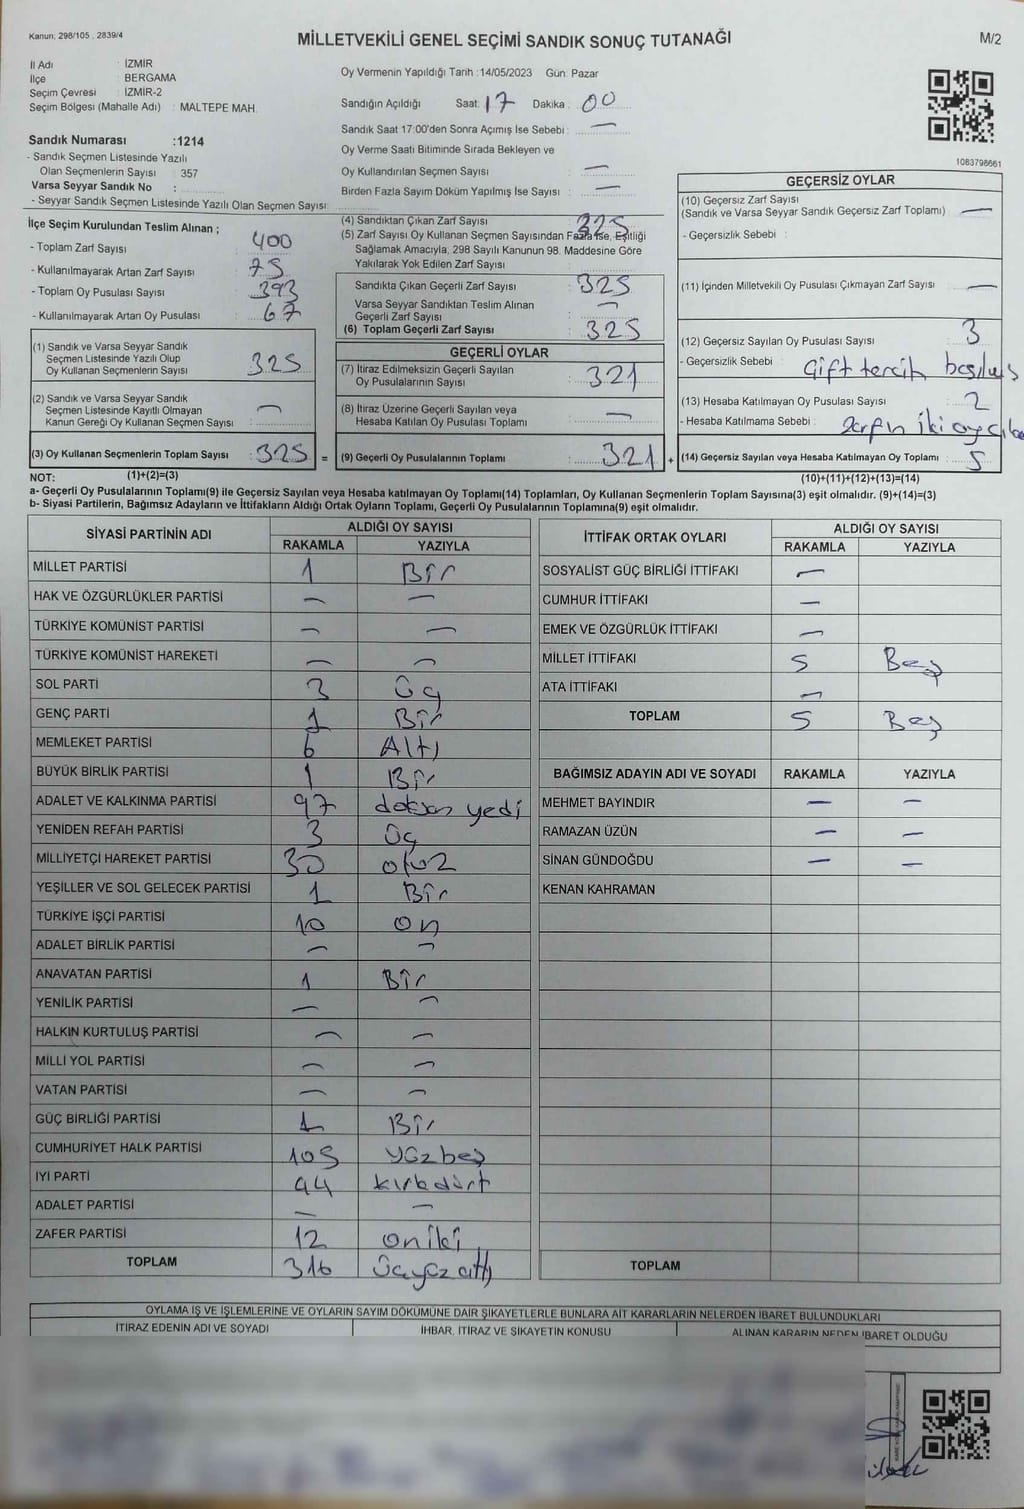 Kanun: 298/105 , 2839/4
MİLLETVEKİLİ GENEL SEÇİMİ SANDIK SONUÇ TUTANAĞI
M/2
İl Adı : İZMİR
İlçe : BERGAMA
Seçim Çevresi : İZMİR-2
Seçim Bölgesi (Mahalle Adı) : MALTEPE MAH.
Sandık Numarası :1214
- Sandık Seçmen Listesinde Yazılı
Olan Seçmenlerin Sayısı : 357
Varsa Seyyar Sandık No :
- Seyyar Sandık Seçmen Listesinde Yazılı Olan Seçmen Sayısı:
Oy Vermenin Yapıldığı Tarih :14/05/2023 Gün: Pazar
Sandığın Açıldığı Saat: 17 Dakika : 00
Sandık Saat 17:00'den Sonra Açımış İse Sebebi : —
Oy Verme Saati Bitiminde Sırada Bekleyen ve
Oy Kullandırılan Seçmen Sayısı : —
Birden Fazla Sayım Döküm Yapılmış İse Sayısı : —
1083798661
İlçe Seçim Kurulundan Teslim Alınan ;
- Toplam Zarf Sayısı : 400
- Kullanılmayarak Artan Zarf Sayısı : 75
- Toplam Oy Pusulası Sayısı : 393
- Kullanılmayarak Artan Oy Pusulası : 67
(1) Sandık ve Varsa Seyyar Sandık
Seçmen Listesinde Yazılı Olup
Oy Kullanan Seçmenlerin Sayısı : 325
(2) Sandık ve Varsa Seyyar Sandık
Seçmen Listesinde Kayıtlı Olmayan
Kanun Gereği Oy Kullanan Seçmen Sayısı : —
(3) Oy Kullanan Seçmenlerin Toplam Sayısı : 325 =
(4) Sandıktan Çıkan Zarf Sayısı : 325
(5) Zarf Sayısı Oy Kullanan Seçmen Sayısından Fazla İse, Eşitliği
Sağlamak Amacıyla, 298 Sayılı Kanunun 98. Maddesine Göre
Yakılarak Yok Edilen Zarf Sayısı :
Sandıkta Çıkan Geçerli Zarf Sayısı : 325
Varsa Seyyar Sandıktan Teslim Alınan
Geçerli Zarf Sayısı : —
(6) Toplam Geçerli Zarf Sayısı : 325
GEÇERLİ OYLAR
(7) İtiraz Edilmeksizin Geçerli Sayılan
Oy Pusulalarının Sayısı : 321
(8) İtiraz Üzerine Geçerli Sayılan veya
Hesaba Katılan Oy Pusulası Toplamı : —
(9) Geçerli Oy Pusulalarının Toplamı : 321 +
GEÇERSİZ OYLAR
(10) Geçersiz Zarf Sayısı
(Sandık ve Varsa Seyyar Sandık Geçersiz Zarf Toplamı) : —
- Geçersizlik Sebebi :
(11) İçinden Milletvekili Oy Pusulası Çıkmayan Zarf Sayısı : —
(12) Geçersiz Sayılan Oy Pusulası Sayısı : 3
- Geçersizlik Sebebi : Çift tercih
(13) Hesaba Katılmayan Oy Pusulası Sayısı : 2
- Hesaba Katılmama Sebebi : iki oy
(14) Geçersiz Sayılan veya Hesaba Katılmayan Oy Toplamı : 5
NOT: (1)+(2)=(3)
(10)+(11)+(12)+(13)=(14)
a- Geçerli Oy Pusulalarının Toplamı(9) ile Geçersiz Sayılan veya Hesaba katılmayan Oy Toplamı(14) Toplamları, Oy Kullanan Seçmenlerin Toplam Sayısına(3) eşit olmalıdır. (9)+(14)=(3)
b- Siyasi Partilerin, Bağımsız Adayların ve İttifakların Aldığı Ortak Oyların Toplamı, Geçerli Oy Pusulalarının Toplamına(9) eşit olmalıdır.
SİYASİ PARTİNİN ADI ALDIĞI OY SAYISI
RAKAMLA YAZIYLA
MİLLET PARTİSİ 1 Bir
HAK VE ÖZGÜRLÜKLER PARTİSİ — —
TÜRKİYE KOMÜNİST PARTİSİ — —
TÜRKİYE KOMÜNİST HAREKETİ — —
SOL PARTİ 3 Üç
GENÇ PARTİ 1 Bir
MEMLEKET PARTİSİ 6 Altı
BÜYÜK BİRLİK PARTİSİ 1 Bir
ADALET VE KALKINMA PARTİSİ 97 doksan yedi
YENİDEN REFAH PARTİSİ 3 Üç
MİLLİYETÇİ HAREKET PARTİSİ 30 otuz
YEŞİLLER VE SOL GELECEK PARTİSİ 1 Bir
TÜRKİYE İŞÇİ PARTİSİ 10 on
ADALET BİRLİK PARTİSİ — —
ANAVATAN PARTİSİ 1 Bir
YENİLİK PARTİSİ — —
HALKIN KURTULUŞ PARTİSİ — —
MİLLİ YOL PARTİSİ — —
VATAN PARTİSİ — —
GÜÇ BİRLİĞİ PARTİSİ 1 Bir
CUMHURİYET HALK PARTİSİ 105 yüzbeş
İYİ PARTİ 44 kırkdört
ADALET PARTİSİ — —
ZAFER PARTİSİ 12 oniki
TOPLAM 316
İTTİFAK ORTAK OYLARI ALDIĞI OY SAYISI
RAKAMLA YAZIYLA
SOSYALİST GÜÇ BİRLİĞİ İTTİFAKI —
CUMHUR İTTİFAKI —
EMEK VE ÖZGÜRLÜK İTTİFAKI —
MİLLET İTTİFAKI 5 Beş
ATA İTTİFAKI —
TOPLAM 5 Beş
BAĞIMSIZ ADAYIN ADI VE SOYADI RAKAMLA YAZIYLA
MEHMET BAYINDIR — —
RAMAZAN ÜZÜN — —
SİNAN GÜNDOĞDU — —
KENAN KAHRAMAN
TOPLAM
OYLAMA İŞ VE İŞLEMLERİNE VE OYLARIN SAYIM DÖKÜMÜNE DAİR ŞİKAYETLERLE BUNLARA AİT KARARLARIN NELERDEN İBARET BULUNDUKLARI
İTİRAZ EDENİN ADI VE SOYADI İHBAR, İTİRAZ VE ŞİKAYETİN KONUSU ALINAN KARARIN NEDEN İBARET OLDUĞU